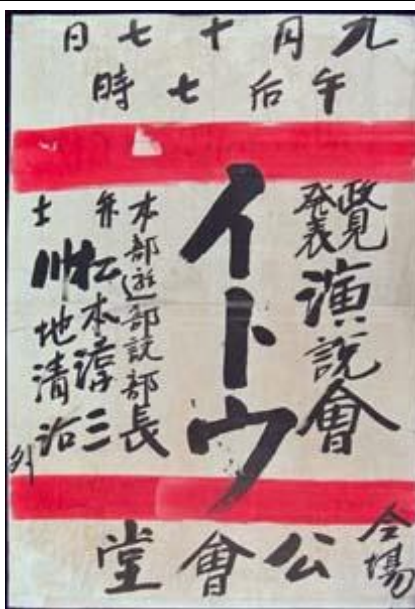 九月十七日
午后七時
政見
発表
演説會
イトウ
本部遊部説部長
弁士
松本淳三
川地清治
外
会場
公會堂